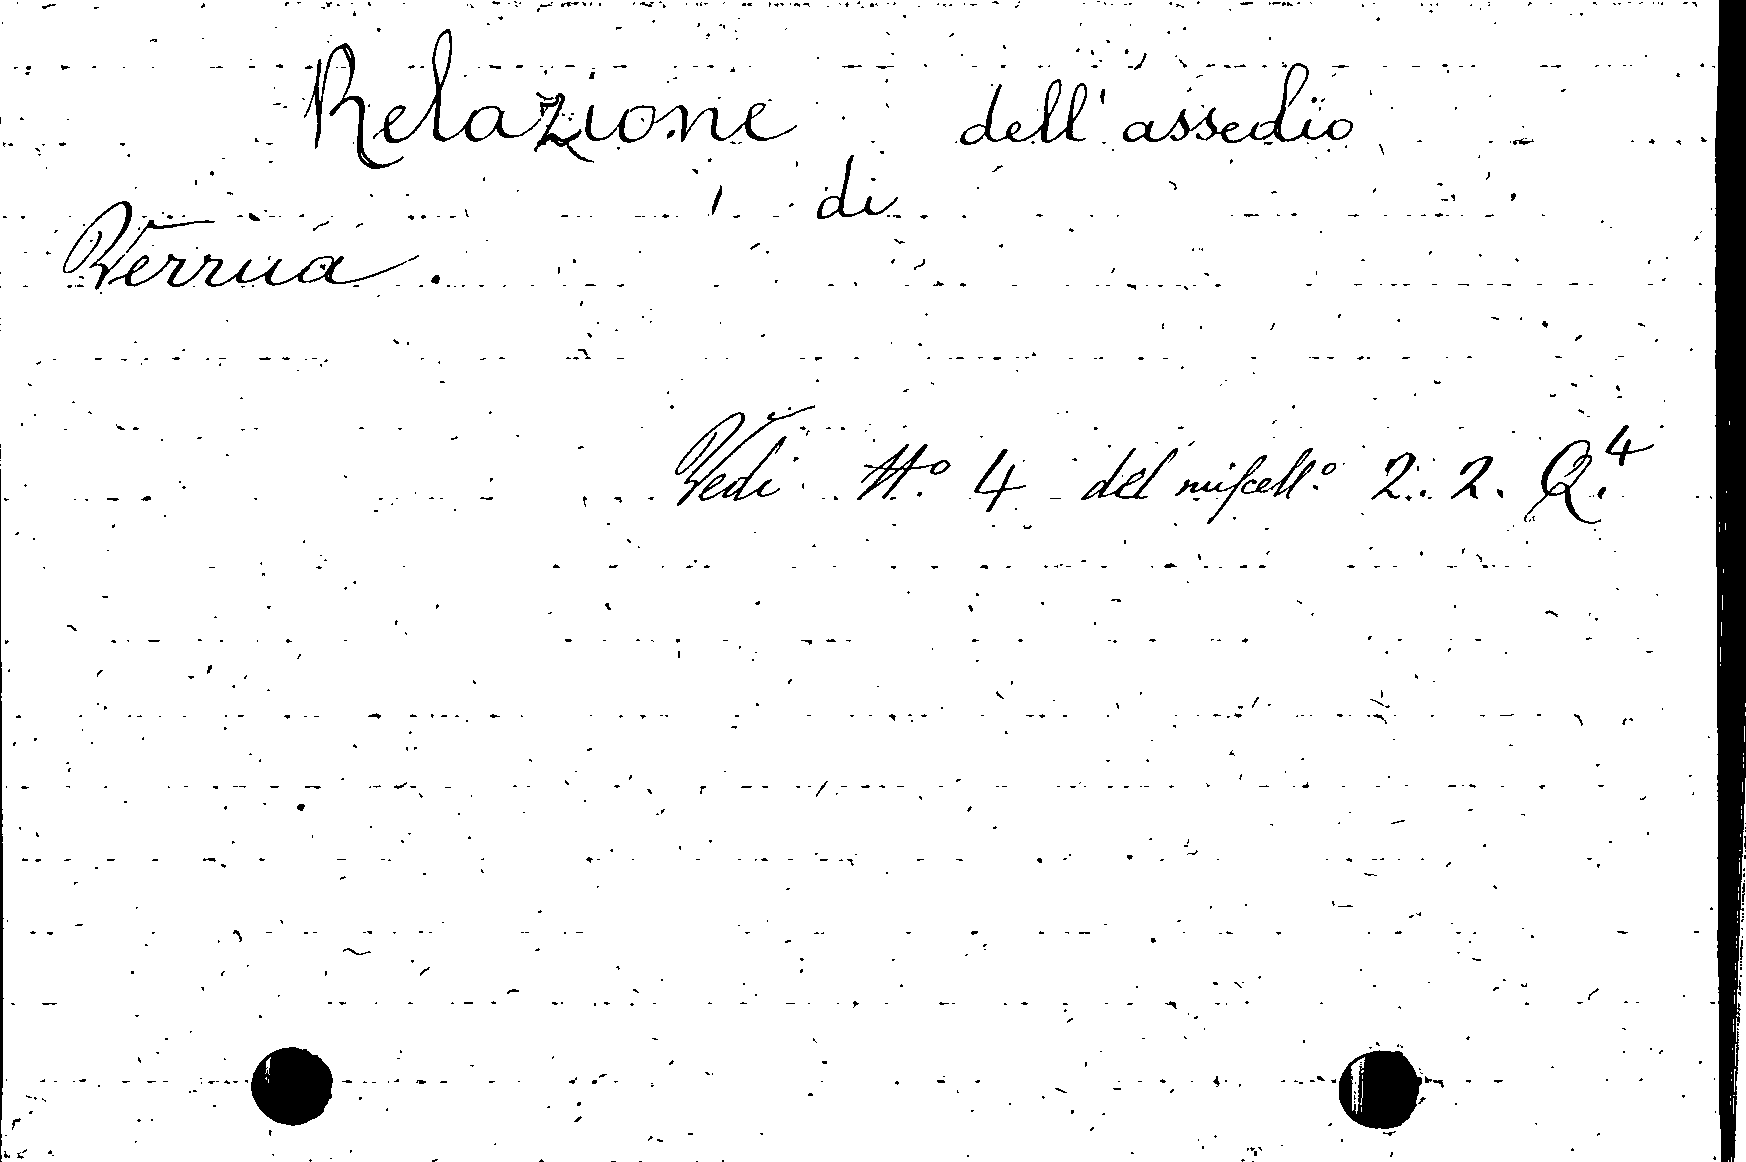 Relazione dell'assedio
di
Verrua.
Vedi N.º 4 del miscell.º 2. 2. Q.4